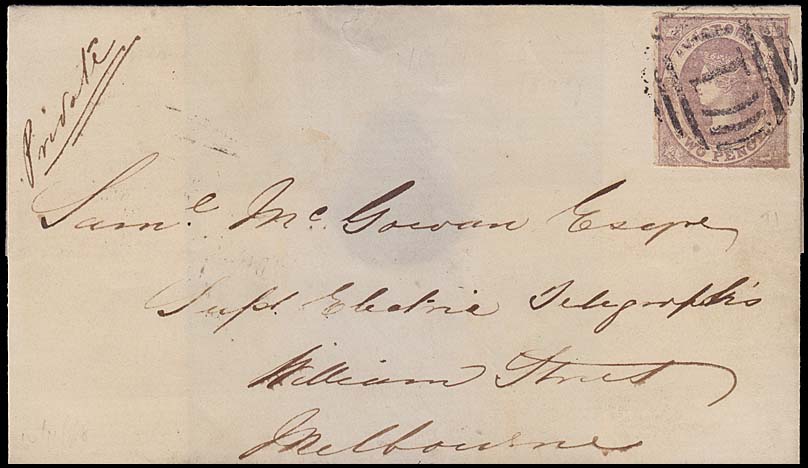 Private
VICTORIA
TWO PENCE
Saml. Mc. Gowan Esqre
Supt. Electric Telegraph's
William Street
Melbourne